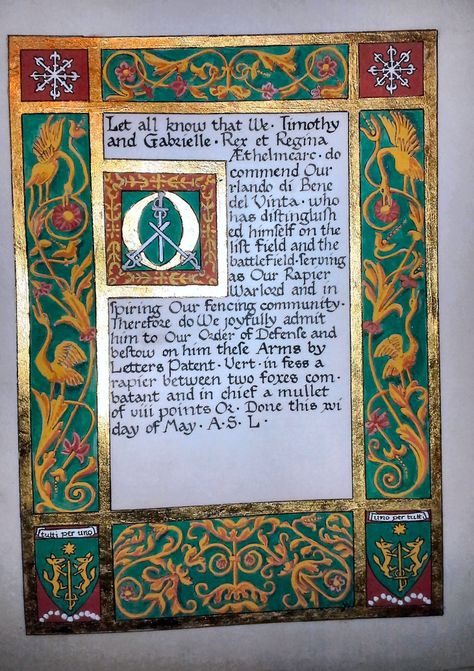 Let all know that We · Timothy
and Gabrielle · Rex et Regina
Æthelmearc · do
commend Our
O
rlando di Bene
del Vinta · who
has distinguish
ed himself on the
list field and the
battlefield · serving
as Our Rapier
Warlord and in
spiring Our fencing community ·
Therefore do We joyfully admit
him to Our Order of Defense and
bestow on him these Arms by
Letters Patent · Vert · in fess a
rapier between two foxes com ·
batant and in chief a mullet
of viii points Or · Done this xvi
day of May · A · S · L ·
tutti per uno
uno per tutti